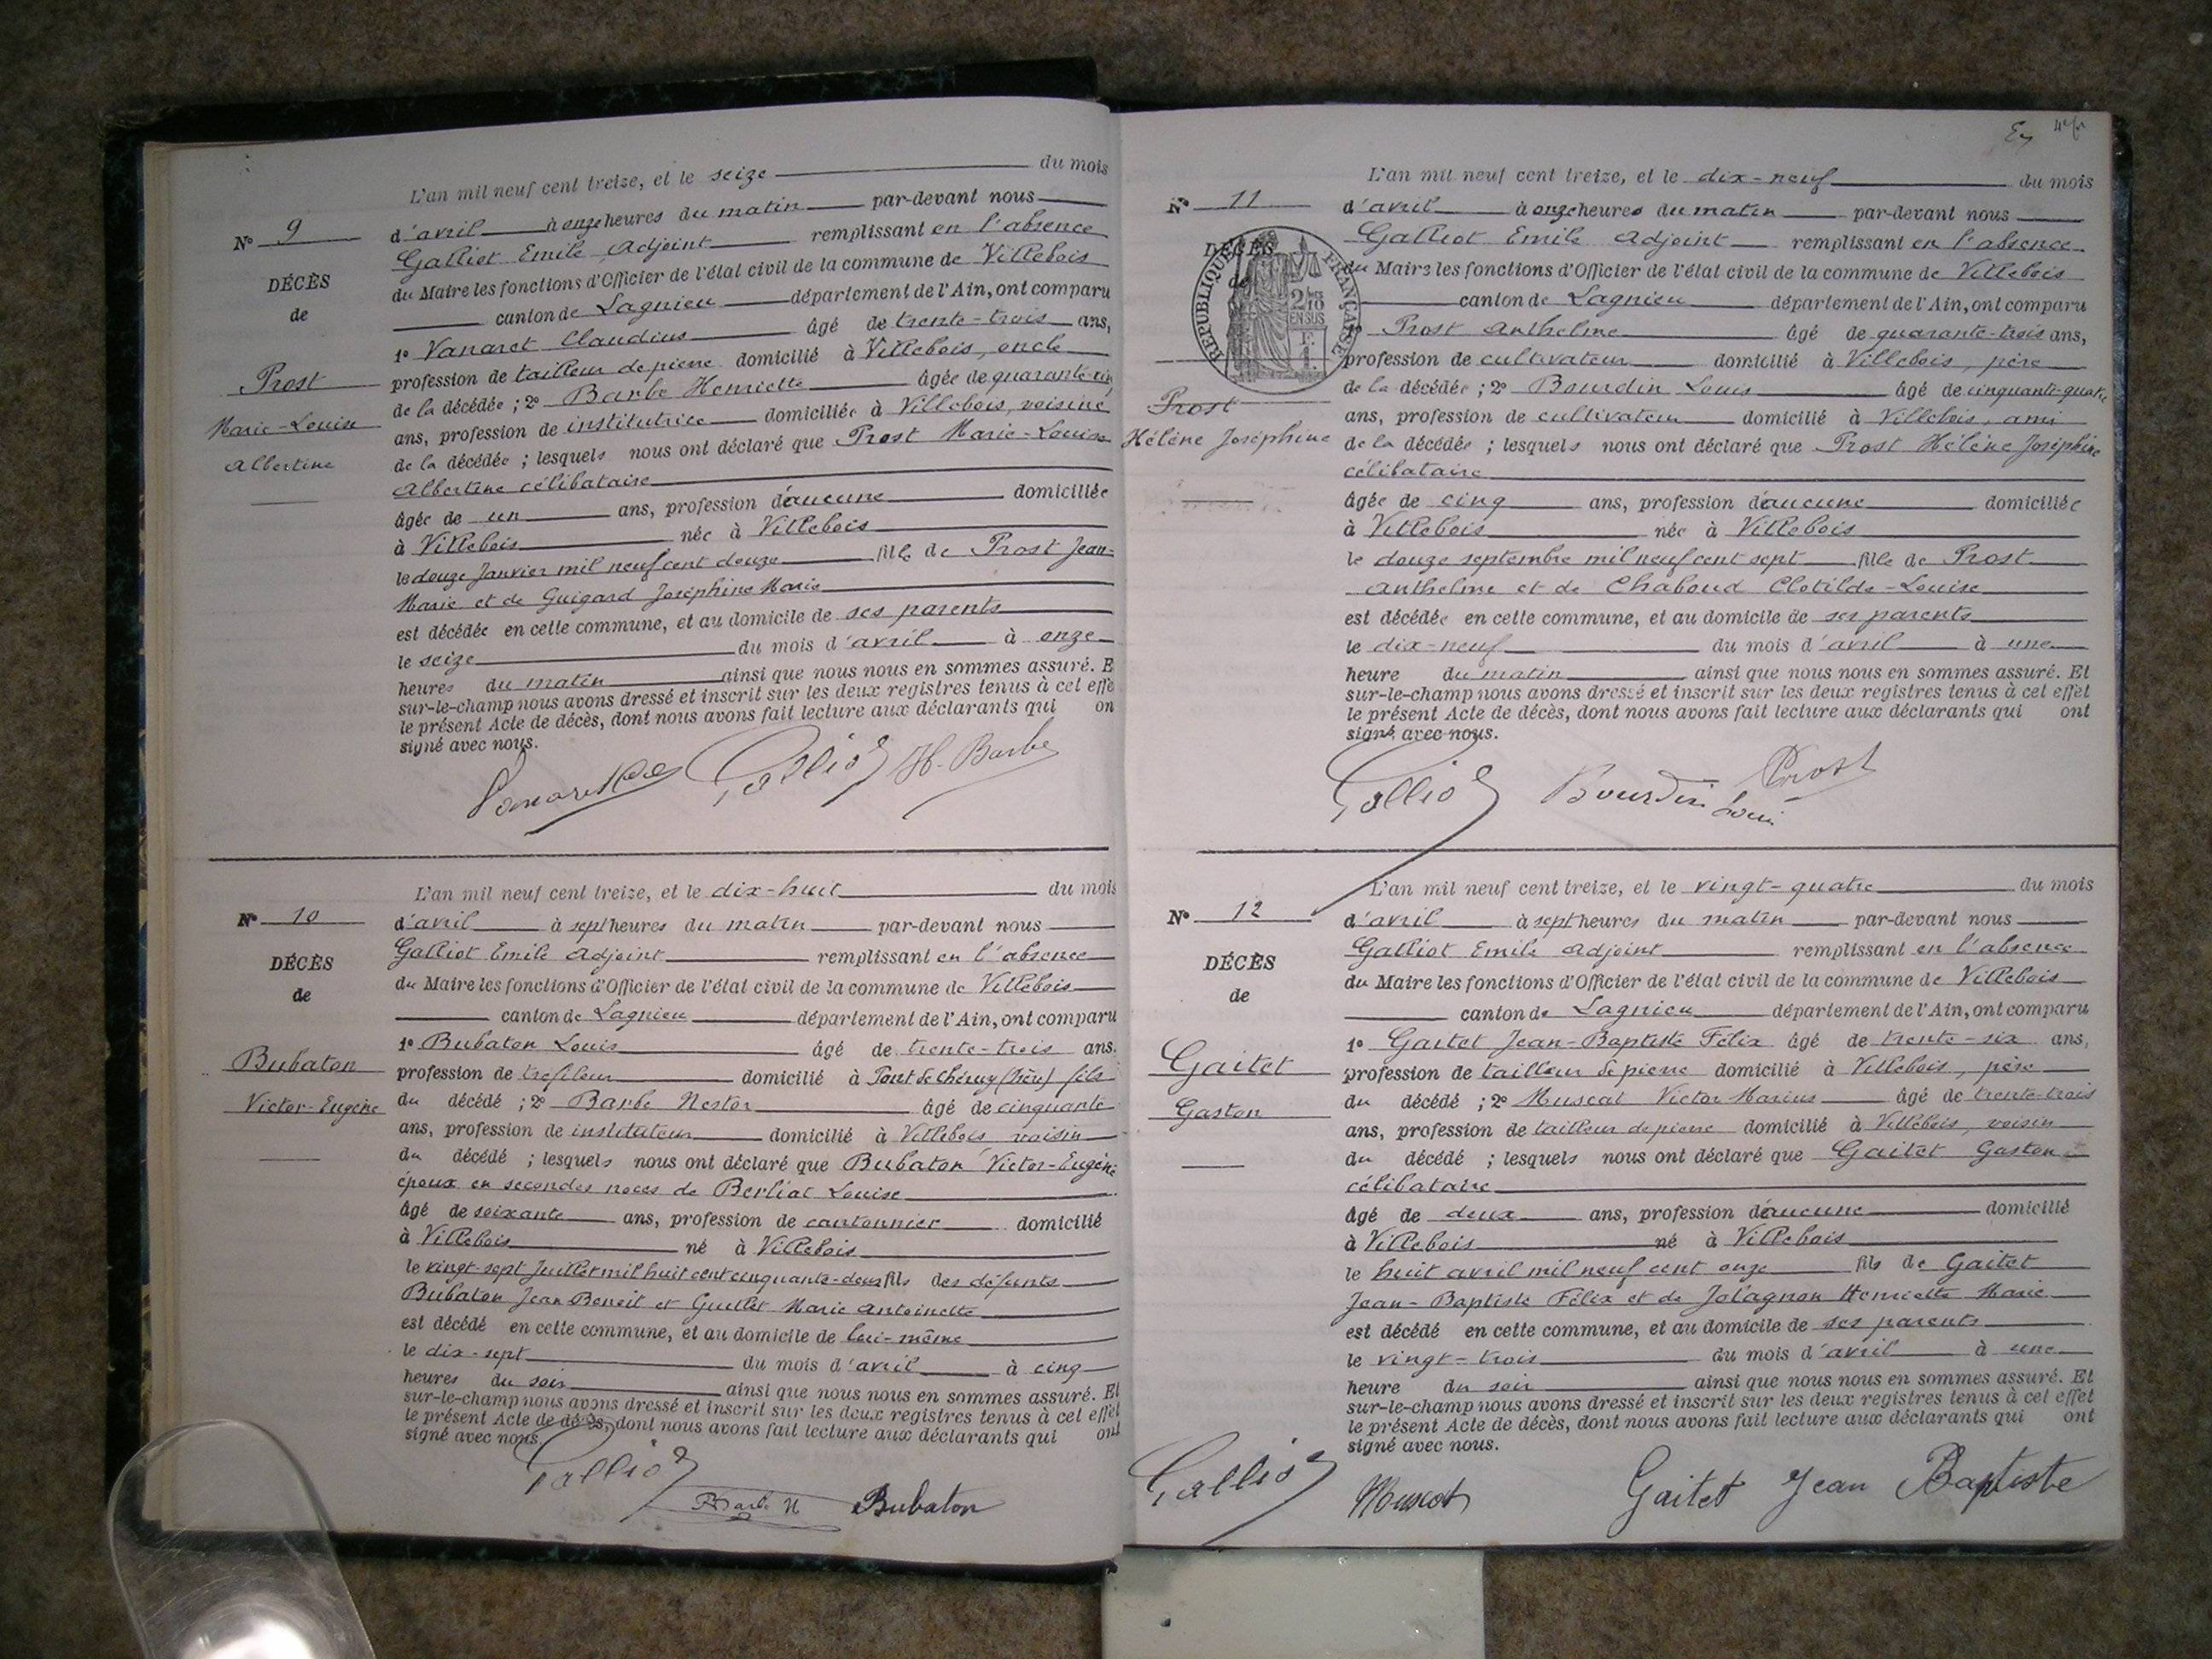 L'an mil neuf cent treize, et le seize du mois
N° 9
d'avril à onze heures du matin par-devant nous
Galliot Emile Adjoint remplissant en l'absence
DÉCÈS
du Maire les fonctions d'Officier de l'état civil de la commune de Villebois
de
canton de Lagnieu département de l'Ain, ont comparu
1° Vanaret Claudius âgé de trente-trois ans,
Prost
profession de tailleur de pierre domicilié à Villebois, oncle
de la décédée ; 2° Barbe Henriette âgée de quarante-cinq
Marie-Louise
ans, profession de institutrice domiciliée à Villebois, voisine
Albertine
de la décédée ; lesquels nous ont déclaré que Prost Marie-Louise
Albertine célibataire
âgée de un ans, profession d'aucune domiciliée
à Villebois née à Villebois
le douze Janvier mil neuf cent douze fille de Prost Jean-
Marie et de Guigard Joséphine Marie
est décédée en cette commune, et au domicile de ses parents
le seize du mois d'avril à onze
heures du matin ainsi que nous nous en sommes assuré. E
sur-le-champ nous avons dressé et inscrit sur les deux registres tenus à cet effe
le présent Acte de décès, dont nous avons fait lecture aux déclarants qui on
signé avec nous.
Galliot H. Barbe
L'an mil neuf cent treize, et le dix-huit du mois
N° 10
d'avril à sept heures du matin par-devant nous
Galliot Emile Adjoint remplissant en l'absence
DÉCÈS
du Maire les fonctions d'Officier de l'état civil de la commune de Villebois
de
canton de Lagnieu département de l'Ain, ont comparu
1° Bubaton Louis âgé de trente-trois ans.
Bubaton
profession de trefileur domicilié à Pont de Chéruy (Isère) fils
Victor-Eugène
du décédé ; 2° Barbe Nestor âgé de cinquante
ans, profession de instituteur domicilié à Villebois voisin
du décédé ; lesquels nous ont déclaré que Bubaton Victor-Eugène
époux en secondes noces de Berliat Louise
âgé de soixante ans, profession de cantonnier domicilié
à Villebois né à Villebois
le vingt-sept Juillet mil huit cent cinquante-deux fils des défunts
Bubaton Jean Benoit et Guillet Marie Antoinette
est décédé en cette commune, et au domicile de lui-même
le dix-sept du mois d'avril à cinq
heures du soir ainsi que nous nous en sommes assuré. Et
sur-le-champ nous avons dressé et inscrit sur les deux registres tenus à cet effet
le présent Acte de décès, dont nous avons fait lecture aux déclarants qui ont
signé avec nous.
Galliot
Barbe N Bubaton
L'an mil neuf cent treize, et le dix-neuf du mois
N° 11
d'avril à onze heures du matin par-devant nous
Galliot Emile Adjoint remplissant en l'absence
DÉCÈS
de
RÉPUBLIQUE FRANÇAISE
2/10 EN SUS
du Maire les fonctions d'Officier de l'état civil de la commune de Villebois
canton de Lagnieu département de l'Ain, ont comparu
1° Prost Anthelme âgé de quarante-trois ans,
profession de cultivateur domicilié à Villebois, père
de la décédée ; 2° Bourdin Louis âgé de cinquante-quatre
Prost
ans, profession de cultivateur domicilié à Villebois, ami
Hélène Joséphine
de la décédée ; lesquels nous ont déclaré que Prost Hélène Joséphine
célibataire
âgée de cinq ans, profession d'aucune domiciliée
à Villebois née à Villebois
le douze septembre mil neuf cent sept fille de Prost
Anthelme et de Chaboud Clotilde-Louise
est décédée en cette commune, et au domicile de ses parents
le dix-neuf du mois d'avril à une
heure du matin ainsi que nous nous en sommes assuré. Et
sur-le-champ nous avons dressé et inscrit sur les deux registres tenus à cet effet
le présent Acte de décès, dont nous avons fait lecture aux déclarants qui ont
signé avec nous.
Galliot Bourdin Louis Prost
L'an mil neuf cent treize, et le vingt-quatre du mois
N° 12
d'avril à sept heures du matin par-devant nous
Galliot Emile Adjoint remplissant en l'absence
DÉCÈS
du Maire les fonctions d'Officier de l'état civil de la commune de Villebois
de
canton de Lagnieu département de l'Ain, ont comparu
1° Gaitet Jean-Baptiste Félix âgé de trente-six ans,
Gaitet
profession de tailleur de pierre domicilié à Villebois, père
Gaston
du décédé ; 2° Muscat Victor Marius âgé de trente-trois
ans, profession de tailleur de pierre domicilié à Villebois, voisin
du décédé ; lesquels nous ont déclaré que Gaitet Gaston
célibataire
âgé de deux ans, profession d'aucune domicilié
à Villebois né à Villebois
le huit avril mil neuf cent onze fils de Gaitet
Jean-Baptiste Félix et de Jolagnon Henriette Marie
est décédé en cette commune, et au domicile de ses parents
le vingt-trois du mois d'avril à une
heure du soir ainsi que nous nous en sommes assuré. Et
sur-le-champ nous avons dressé et inscrit sur les deux registres tenus à cet effet
le présent Acte de décès, dont nous avons fait lecture aux déclarants qui ont
signé avec nous.
Galliot Muscat Gaitet Jean Baptiste